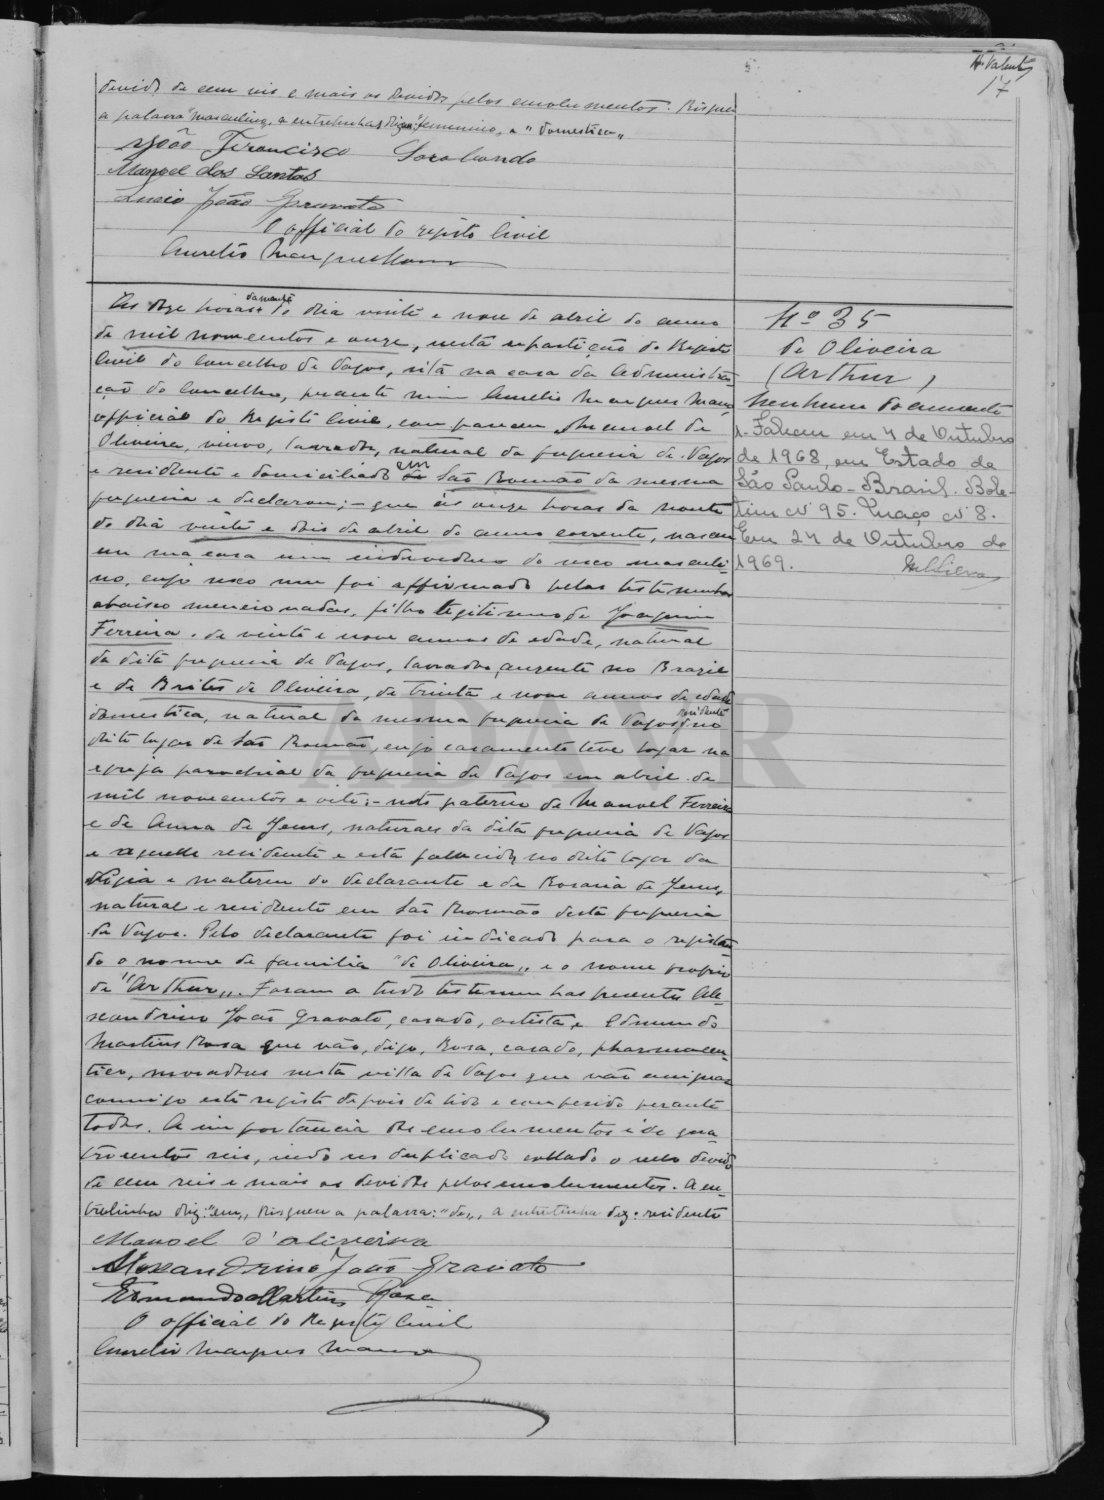 H. Valente
17
devido de cem reis e mais os devidos pelos emolumentos. Risquei
a palavra "masculino, a entrelinha diz: "femenino, e "domestica"
João Francisco Sarabando
Manoel dos Santos
Lucio João Gravato
O official do registo Civil
Aurelio Marques Mano
As doze horas da manhã do dia vinte e nove de abril do anno
de mil novecentos e onze, nesta repartição do Registo
Civil do Concelho de Vagos, sita na casa da Administra-
ção do Concelho, perante mim Aurelio Marques Mano
official do Registo Civil, compareceu Manoel de
Oliveira, viuvo, lavrador, natural da freguesia de Vagos
e residente e domiciliado em São Romão da mesma
freguesia e declarou; - que ás onze horas da noute
do dia vinte e dois de abril do anno corrente, nasceu
em sua casa um individuo do sexo masculi-
no, cujo sexo me foi affirmado pelas testemunhas
abaixo mencionadas, filho legitimo de Joaquim
Ferreira, de vinte e nove annos de edade, natural
da dita freguesia de Vagos, lavrador, auzente no Brazil
e de Brites de Oliveira, de trinta e nove annos de edade
domestica, natural da mesma freguesia de Vagos, residente no
dito logar de São Romão, cujo casamento teve logar na
egreja parochial da freguesia de Vagos em abril de
mil novecentos e oito; - neto paterno de Manoel Ferreira
e de Anna de Jesus, naturaes da dita freguesia de Vagos
e aquelle residente e esta fallecida no dito logar da
Vigia e materno do declarante e de Rosaria de Jesus,
natural e residente em São Romão desta freguesia
de Vagos. Pelo declarante foi indicado para o registan-
do o nome de familia "de Oliveira" e o nome proprio
de "Arthur". Foram a tudo testemunhas presentes Ale-
xandrino João Gravato, casado, artista, e Edmundo
Martins Rosa que vão, digo, Rosa, casado, pharmaceu-
tico, moradores nesta villa de Vagos que vão assignar
commigo este registo depois de lido e conferido perante
todos. A importancia dos emolumentos é de qua-
trocentos reis, indo no duplicado collado o sello devido
de cem reis e mais os devidos pelos emolumentos. A en-
trelinha diz: "em", Risquei a palavra: "de", a entrelinha diz: residente
Manoel d'oliveira
Alexandrino João Gravato
Edmundo Martins Rosa
O official do Registo Civil
Aurelio Marques Mano
Nº 35
de Oliveira
(Arthur)
Nenhum documento
1- Faleceu em 4 de Outubro
de 1968, em Estado de
São Paulo - Brasil. Bole-
tim nº 95. Maço nº 8.
Em 24 de Outubro de
1969.
ADAVR